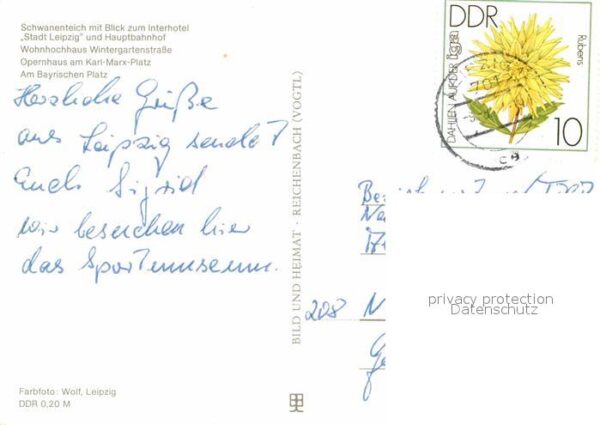 Schwanenteich mit Blick zum Interhotel
„Stadt Leipzig" und Hauptbahnhof
Wohnhochhaus Wintergartenstraße
Opernhaus am Karl-Marx-Platz
Am Bayrischen Platz
Herzliche Grüße
aus Leipzig sendet
Euch Sigrid
wir besuchen hier
das Sportmuseum.
Farbfoto: Wolf, Leipzig
DDR 0,20 M
BILD UND HEIMAT · REICHENBACH (VOGTL)
DDR
DAHLIEN AUF DER iga
Rubens
10
701
208
privacy protection
Datenschutz